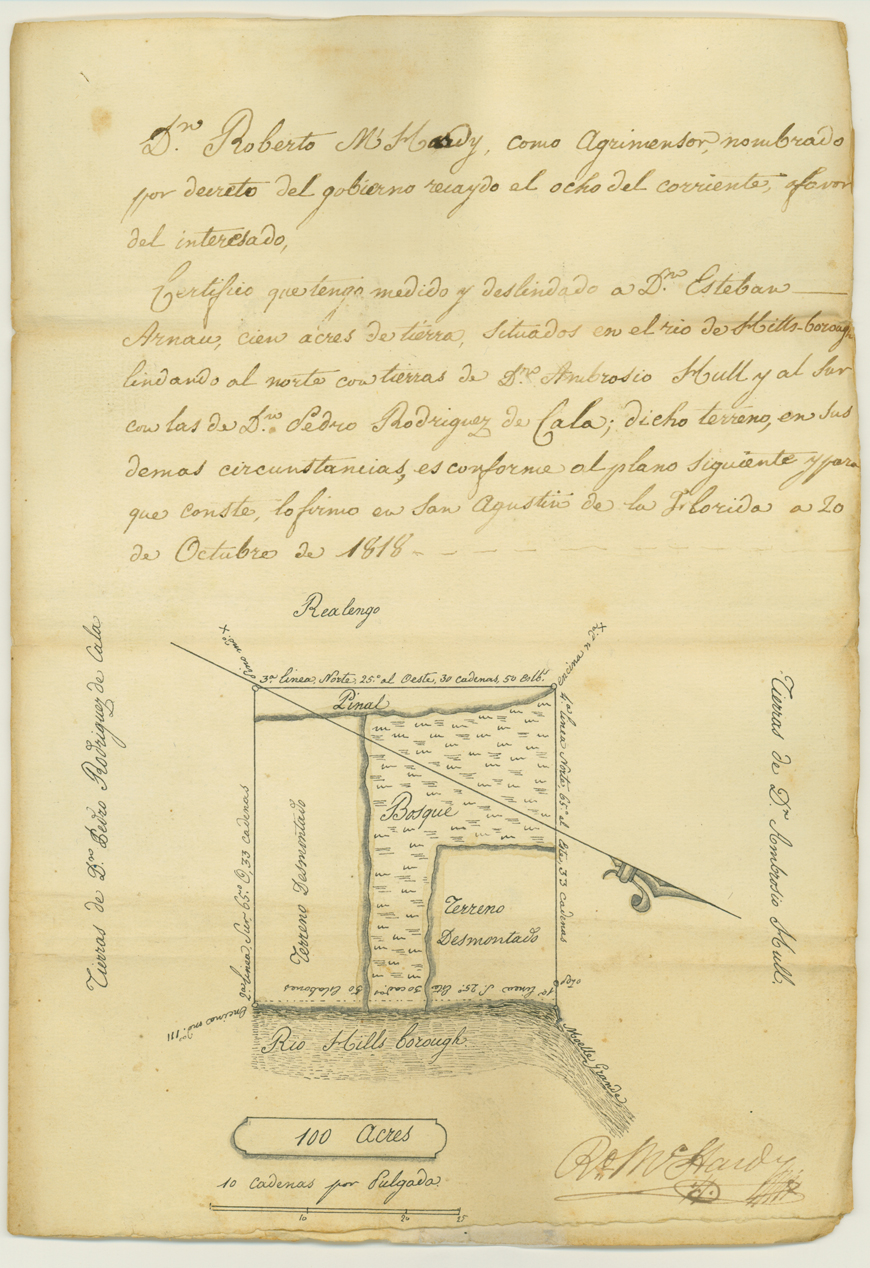 Dn. Roberto Mc Hardy, como Agrimensor, nombrado
por decreto del gobierno recaydo el ocho del corriente, afavor
del interesado,
Certifico que tengo medido y deslindado a Dn. Esteban
Arnau, cien acres de tierra, situados en el rio de Hills-borough
lindando al norte con tierras de Dn. Ambrosio Hull y al Sur
con las de Dn. Pedro Rodriguez de Cala; dicho terreno, en sus
demas circunstancias, es conforme al plano siguiente y para
que conste, lo firmo en San Agustin de la Florida a 20
de Octubre de 1818
Realengo
Pino mdo. X
encina mda. X
3ra. linea, Norte, 25o. al Oeste, 30 cadenas, 50 Eslbs.
Pinal
Tierras de Dn. Pedro Rodriguez de Cala
2da. linea, Sur 65o. O, 33 cadenas
Terreno Desmontado
Bosque
4ta. linea Norte, 65o. el Ete, 33 cadenas
Tierras de Dn. Ambrosio Hull.
Terreno
Desmontado
1ra. linea S. 25o. Ete 30 cads. 50 Eslabones
Encina mda. III
Rio Hills borough.
Muelle Grande
100 Acres
10 cadenas por Pulgada
10 20 25
Rt. McHardy